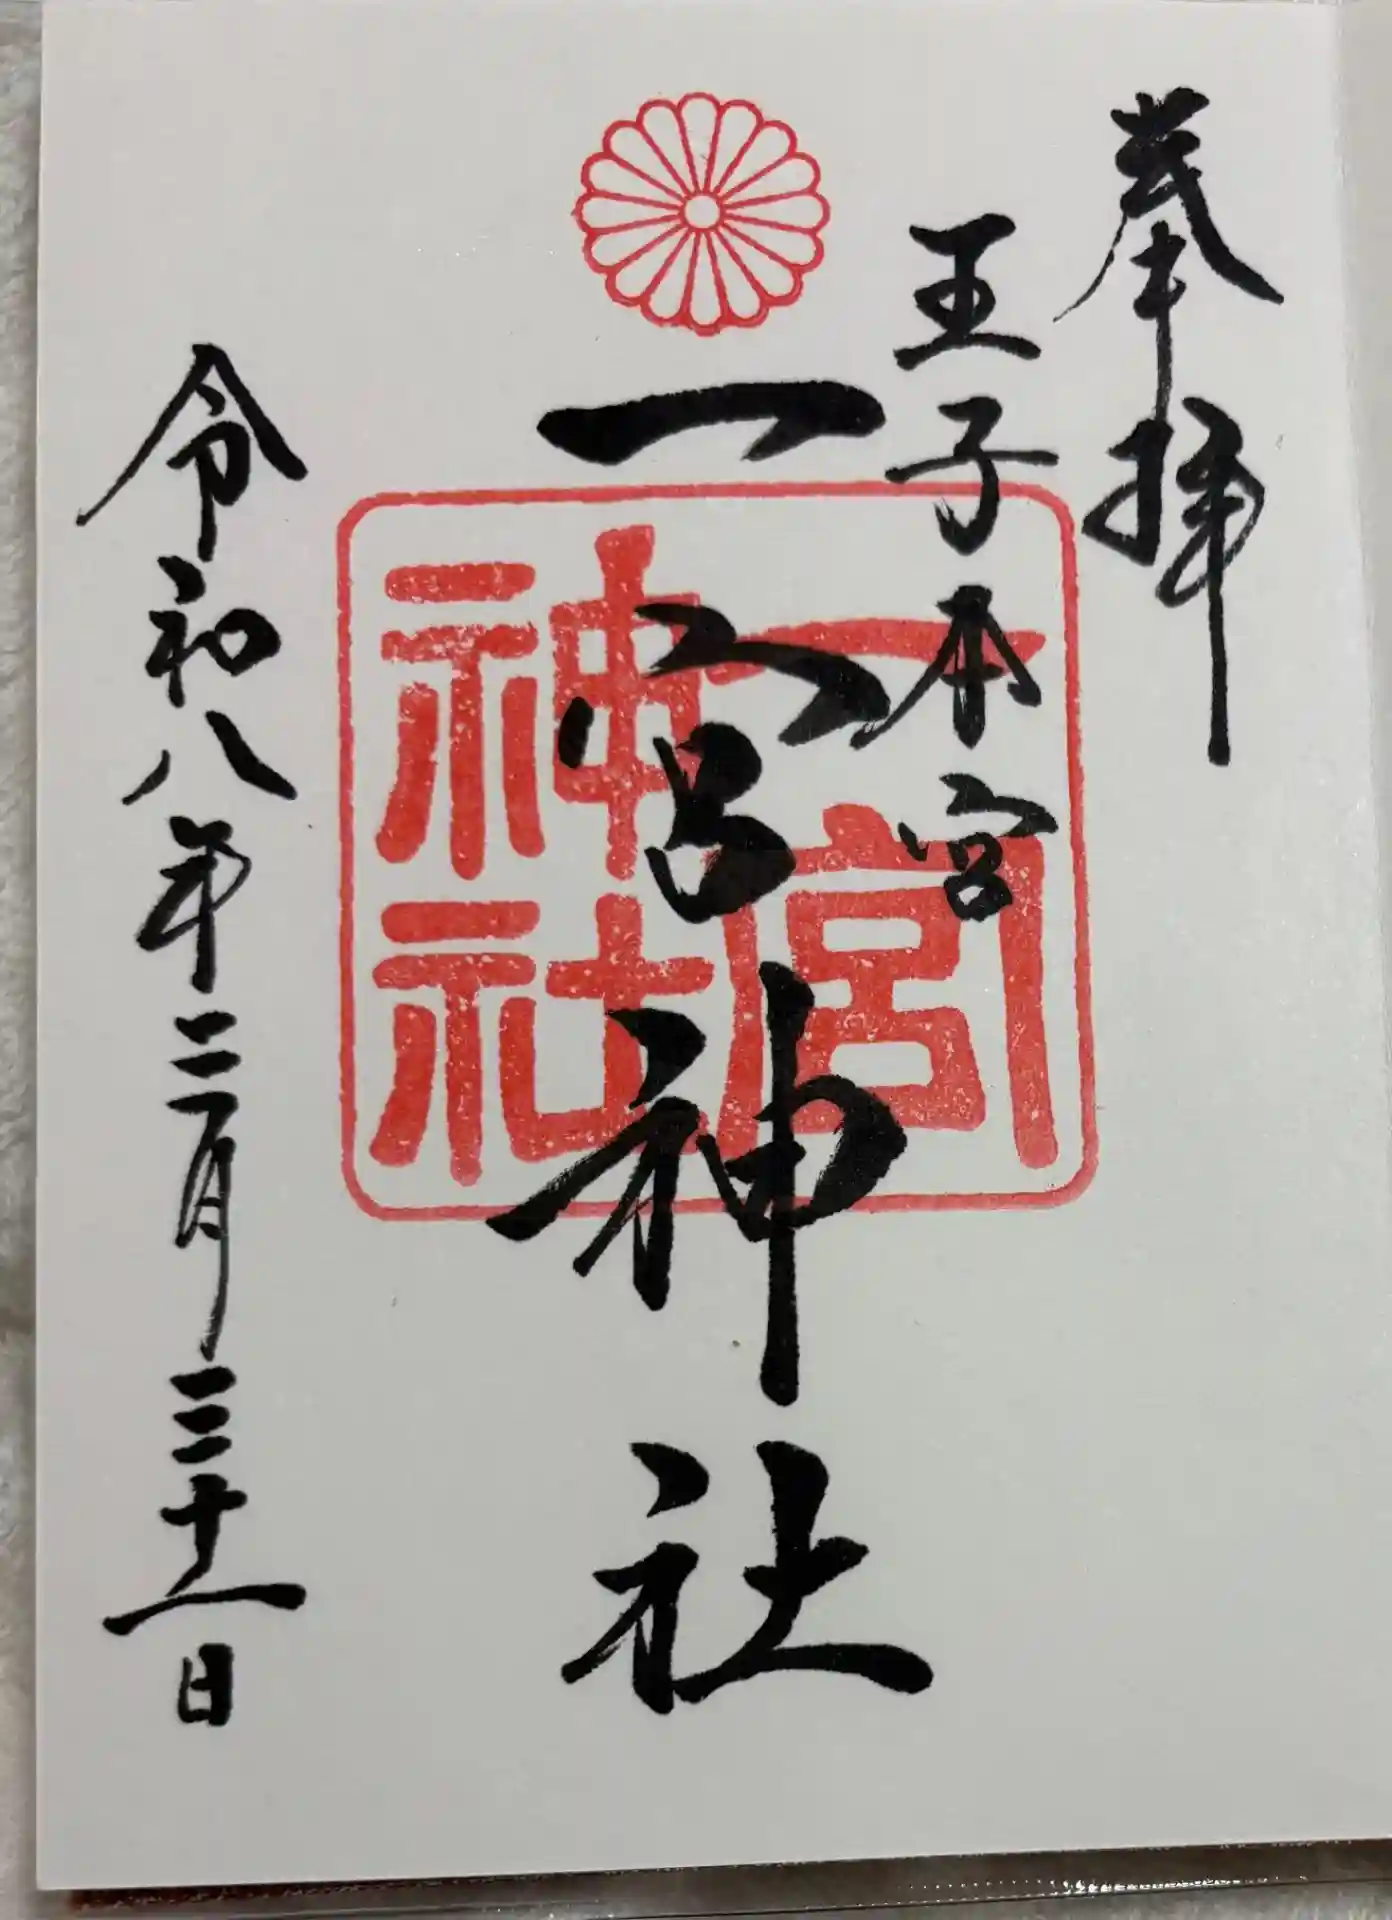 奉拝
王子本宮
一宮神社
令和八年三月三十一日
一宮
神社